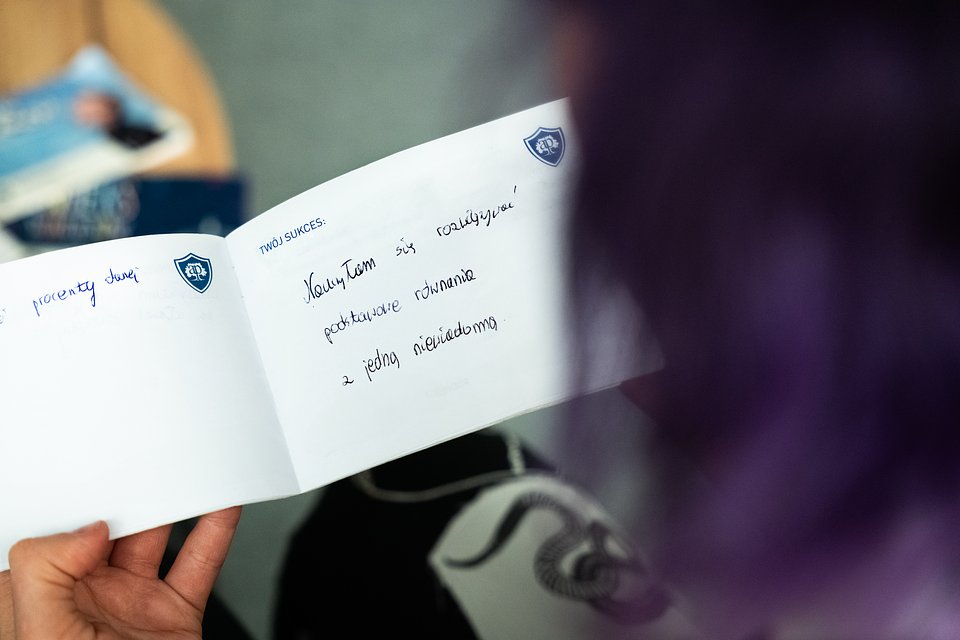 procenty danej
TWÓJ SUKCES:
Nauczyłam się rozwiązywać
podstawowe równania
z jedną niewiadomą.